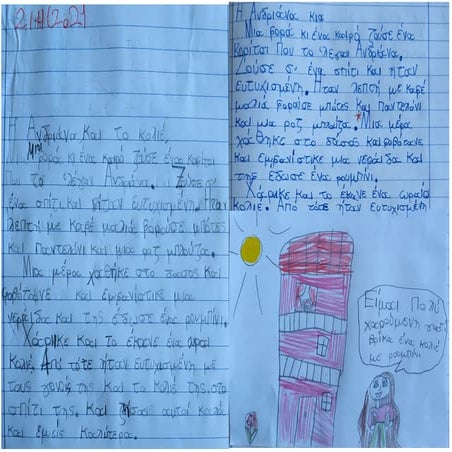 21/4/2021
Η Ανδριάνα και το κολιέ.
Μια φορά κι ένα καιρό ζούσε ένα κορίτσι
Που το λέγαν Ανδριάνα. Ζούσε σ'
ένα σπίτι και ήταν ευτυχισμένη. Ήταν
λεπτή με καφέ μαλλιά φορούσε μπότες
και παντελόνι και μια ροζ μπλούζα.
Μια μέρα χάθηκε στο δάσος και
φοβότανε και εμφανίστικε μια
νεράιδα και της έδωσε ένα ρουμπίνι.
Χάρηκε και το έκανε ένα
κολιέ. Από τότε ήταν ευτυχισμένη με
τους γονείς της και το κολιέ της στο
σπίτι της. Και ζήσανε αυτοί καλά
και εμείς καλύτερα.
Η Ανδριάνα και
Μια φορά κι ένα καιρό ζούσε ένα
κορίτσι που το λέγαν Ανδριάνα.
Ζούσε σ' ένα σπίτι και ήταν
ευτυχισμένη. Ήταν λεπτή με καφέ
μαλιά φορούσε μπότες και παντελόνι
και μια ροζ μπλούζα. Μια μέρα
χάθηκε στο δάσος και φοβότανε
και εμφανίστικε μια νεράιδα και
της έδωσε ένα ρουμπίνι.
Χάρηκε και το έκανε ένα ωραίο
κολιέ. Από τότε ήταν ευτυχισμένη
Είμαι Πολύ
χαρούμενη γιατί
βρίκα ένα κολιέ
με ρουμπίνι